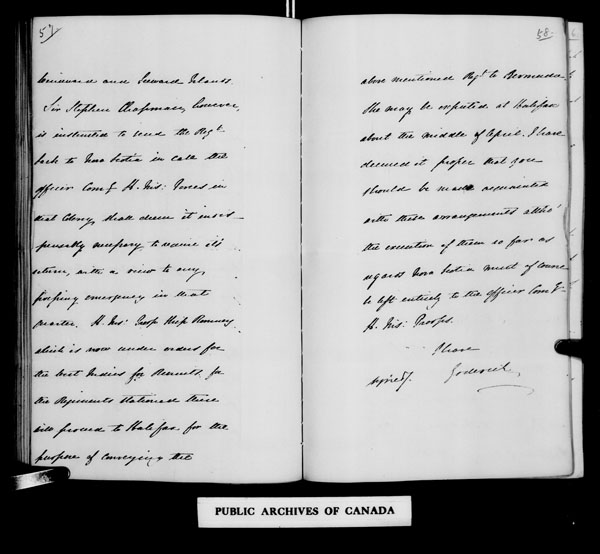 57
Windward and Leeward Islands.
Sir Stephen Chapman, however,
is instructed to send the Regt.
back to Nova Scotia in case the
officer Comg H. Ms: Forces in
that Colony shall deem it indis-
pensably necessary to require its
return, with a view to any
pressing emergency in that
quarter. H. Ms: Troop Ship Romney
which is now under orders for
the West Indies for Reliefs for
the Regiments stationed there
will proceed to Halifax for the
purpose of conveying the
58.
above mentioned Regt. to Bermuda
She may be expected at Halifax
about the middle of April. I have
deemed it proper that you
should be made acquainted
with these arrangements altho'
the execution of them so far as
regards Nova Scotia must of course
be left entirely to the officer Comg
H. Ms: Troops.
I have
signed/. Goderich
PUBLIC ARCHIVES OF CANADA